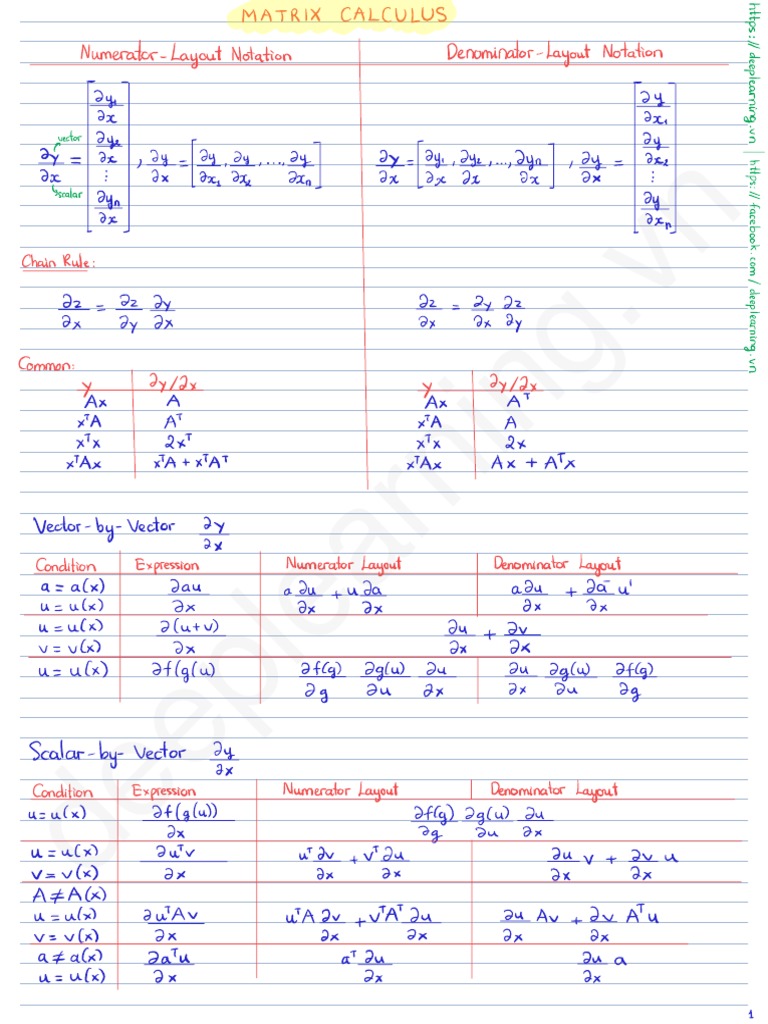 MATRIX CALCULUS
https://deeplearning.vn | https://facebook.com/deeplearning.vn
Numerator-Layout Notation
∂y/∂x = [∂y₁/∂x ∂y₂/∂x ⋮ ∂yₙ/∂x] , ∂y/∂x = [∂y/∂x₁, ∂y/∂x₂, ..., ∂y/∂xₙ]
vector
scalar
Denominator-Layout Notation
∂y/∂x = [∂y₁/∂x, ∂y₂/∂x, ..., ∂yₙ/∂x] , ∂y/∂x = [∂y/∂x₁ ∂y/∂x₂ ⋮ ∂y/∂xₙ]
Chain Rule:
∂z/∂x = ∂z/∂y ∂y/∂x
∂z/∂x = ∂y/∂x ∂z/∂y
Common:
y ∂y/∂x
Ax A
xᵀA Aᵀ
xᵀx 2xᵀ
xᵀAx xᵀA + xᵀAᵀ
y ∂y/∂x
Ax Aᵀ
xᵀA A
xᵀx 2x
xᵀAx Ax + Aᵀx
Vector-by-Vector ∂y/∂x
Condition Expression Numerator Layout Denominator Layout
a = a(x) ∂au/∂x a ∂u/∂x + u ∂a/∂x a ∂u/∂x + ∂a/∂x u'
u = u(x)
u = u(x) ∂(u+v)/∂x ∂u/∂x + ∂v/∂x
v = v(x)
u = u(x) ∂f(g(u) ∂f(g)/∂g ∂g(u)/∂u ∂u/∂x ∂u/∂x ∂g(u)/∂u ∂f(g)/∂g
Scalar-by-Vector ∂y/∂x
Condition Expression Numerator Layout Denominator Layout
u = u(x) ∂f(g(u))/∂x ∂f(g)/∂g ∂g(u)/∂u ∂u/∂x
u = u(x) ∂uᵀv/∂x uᵀ ∂v/∂x + vᵀ ∂u/∂x ∂u/∂x v + ∂v/∂x u
v = v(x)
A ≠ A(x)
u = u(x) ∂uᵀAv/∂x uᵀA ∂v/∂x + vᵀAᵀ ∂u/∂x ∂u/∂x Av + ∂v/∂x Aᵀu
v = v(x)
a ≠ a(x) ∂aᵀu/∂x aᵀ ∂u/∂x ∂u/∂x a
u = u(x)
1
deeplearning.vn